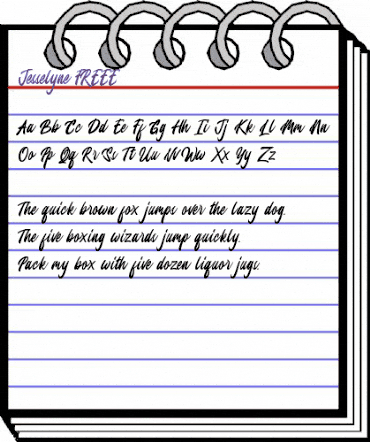 Jesselyne FREEE
Aa Bb Cc Dd Ee Ff Gg Hh Ii Jj Kk Ll Mm Nn
Oo Pp Qq Rr Ss Tt Uu Vv Ww Xx Yy Zz
The quick brown fox jumps over the lazy dog.
The five boxing wizards jump quickly.
Pack my box with five dozen liquor jugs.